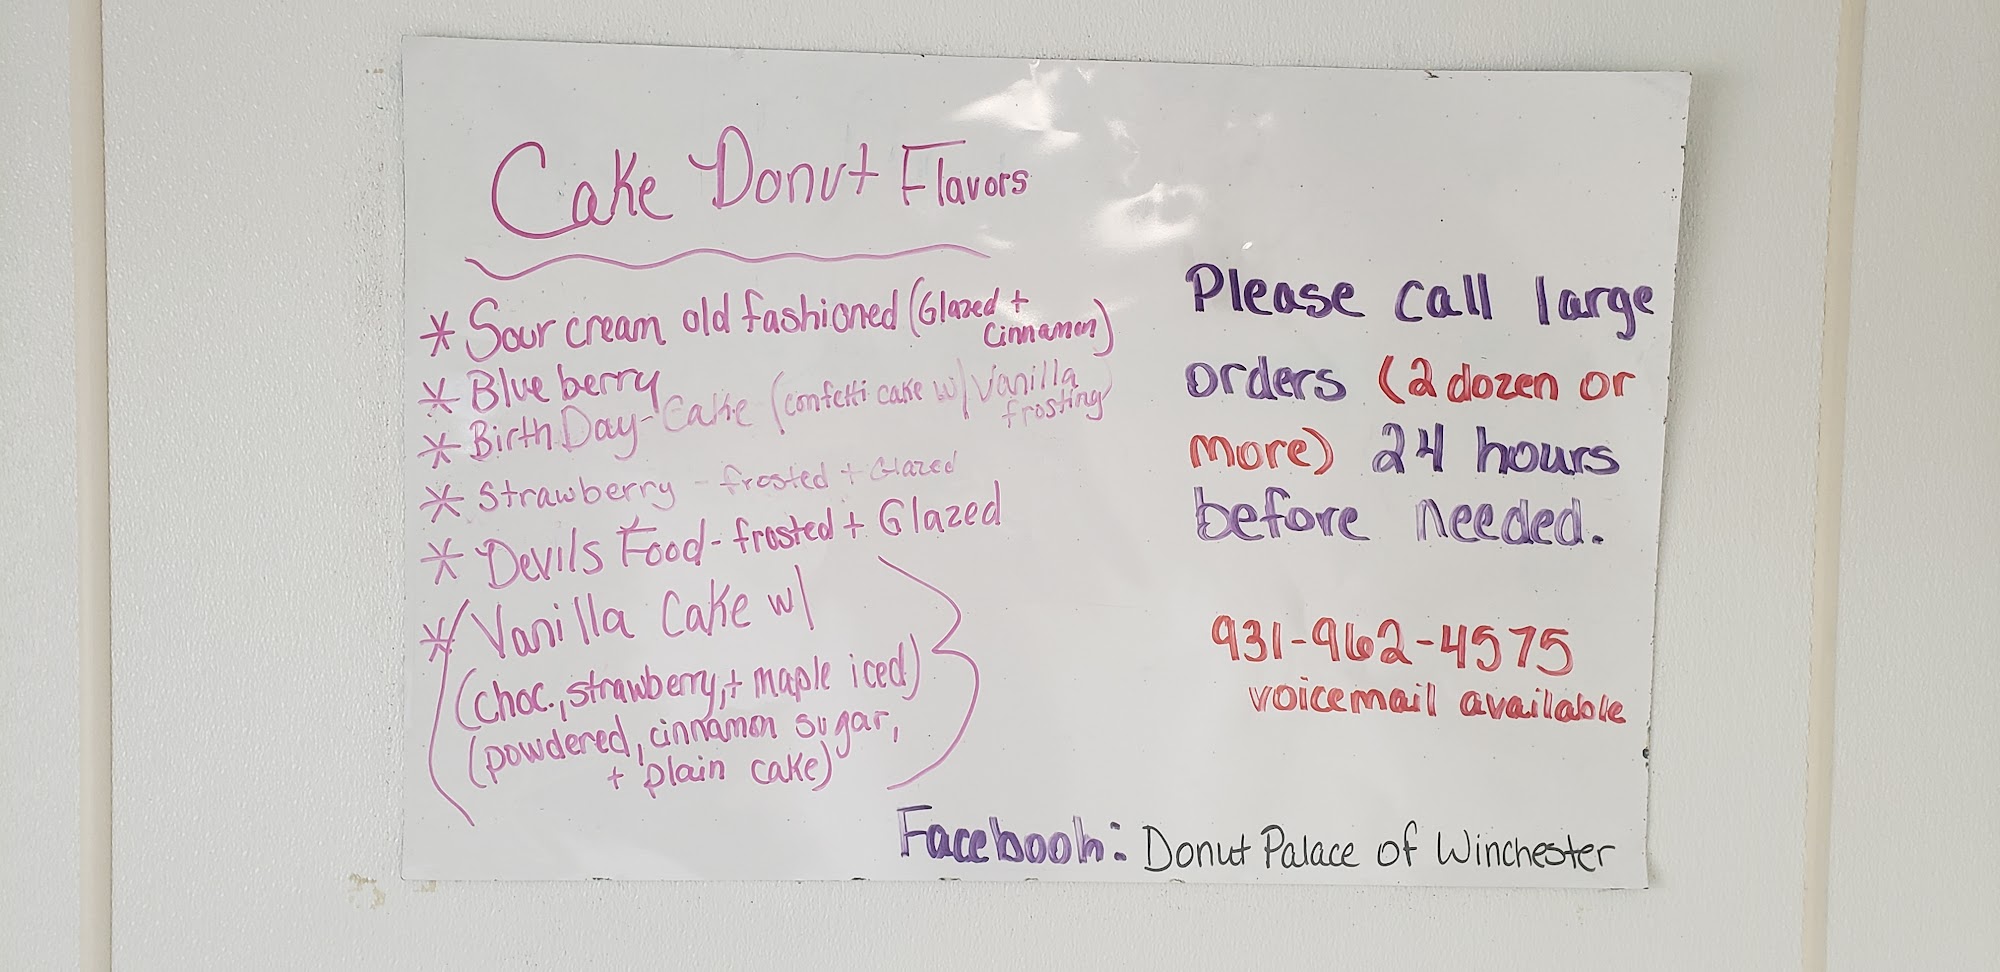 Cake Donut Flavors
* Sour cream old fashioned (Glazed +
Cinnamon)
* Blueberry
* BirthDay-Cake (confetti cake w/ Vanilla
frosting)
* Strawberry - frosted + Glazed
* Devils Food - frosted + Glazed
* Vanilla Cake w/
(choc., strawberry, + maple iced)
(powdered, cinnamon sugar,
+ plain cake)
Please call large
orders (2 dozen or
more) 24 hours
before needed.
931-962-4575
voicemail available
Facebook: Donut Palace of Winchester